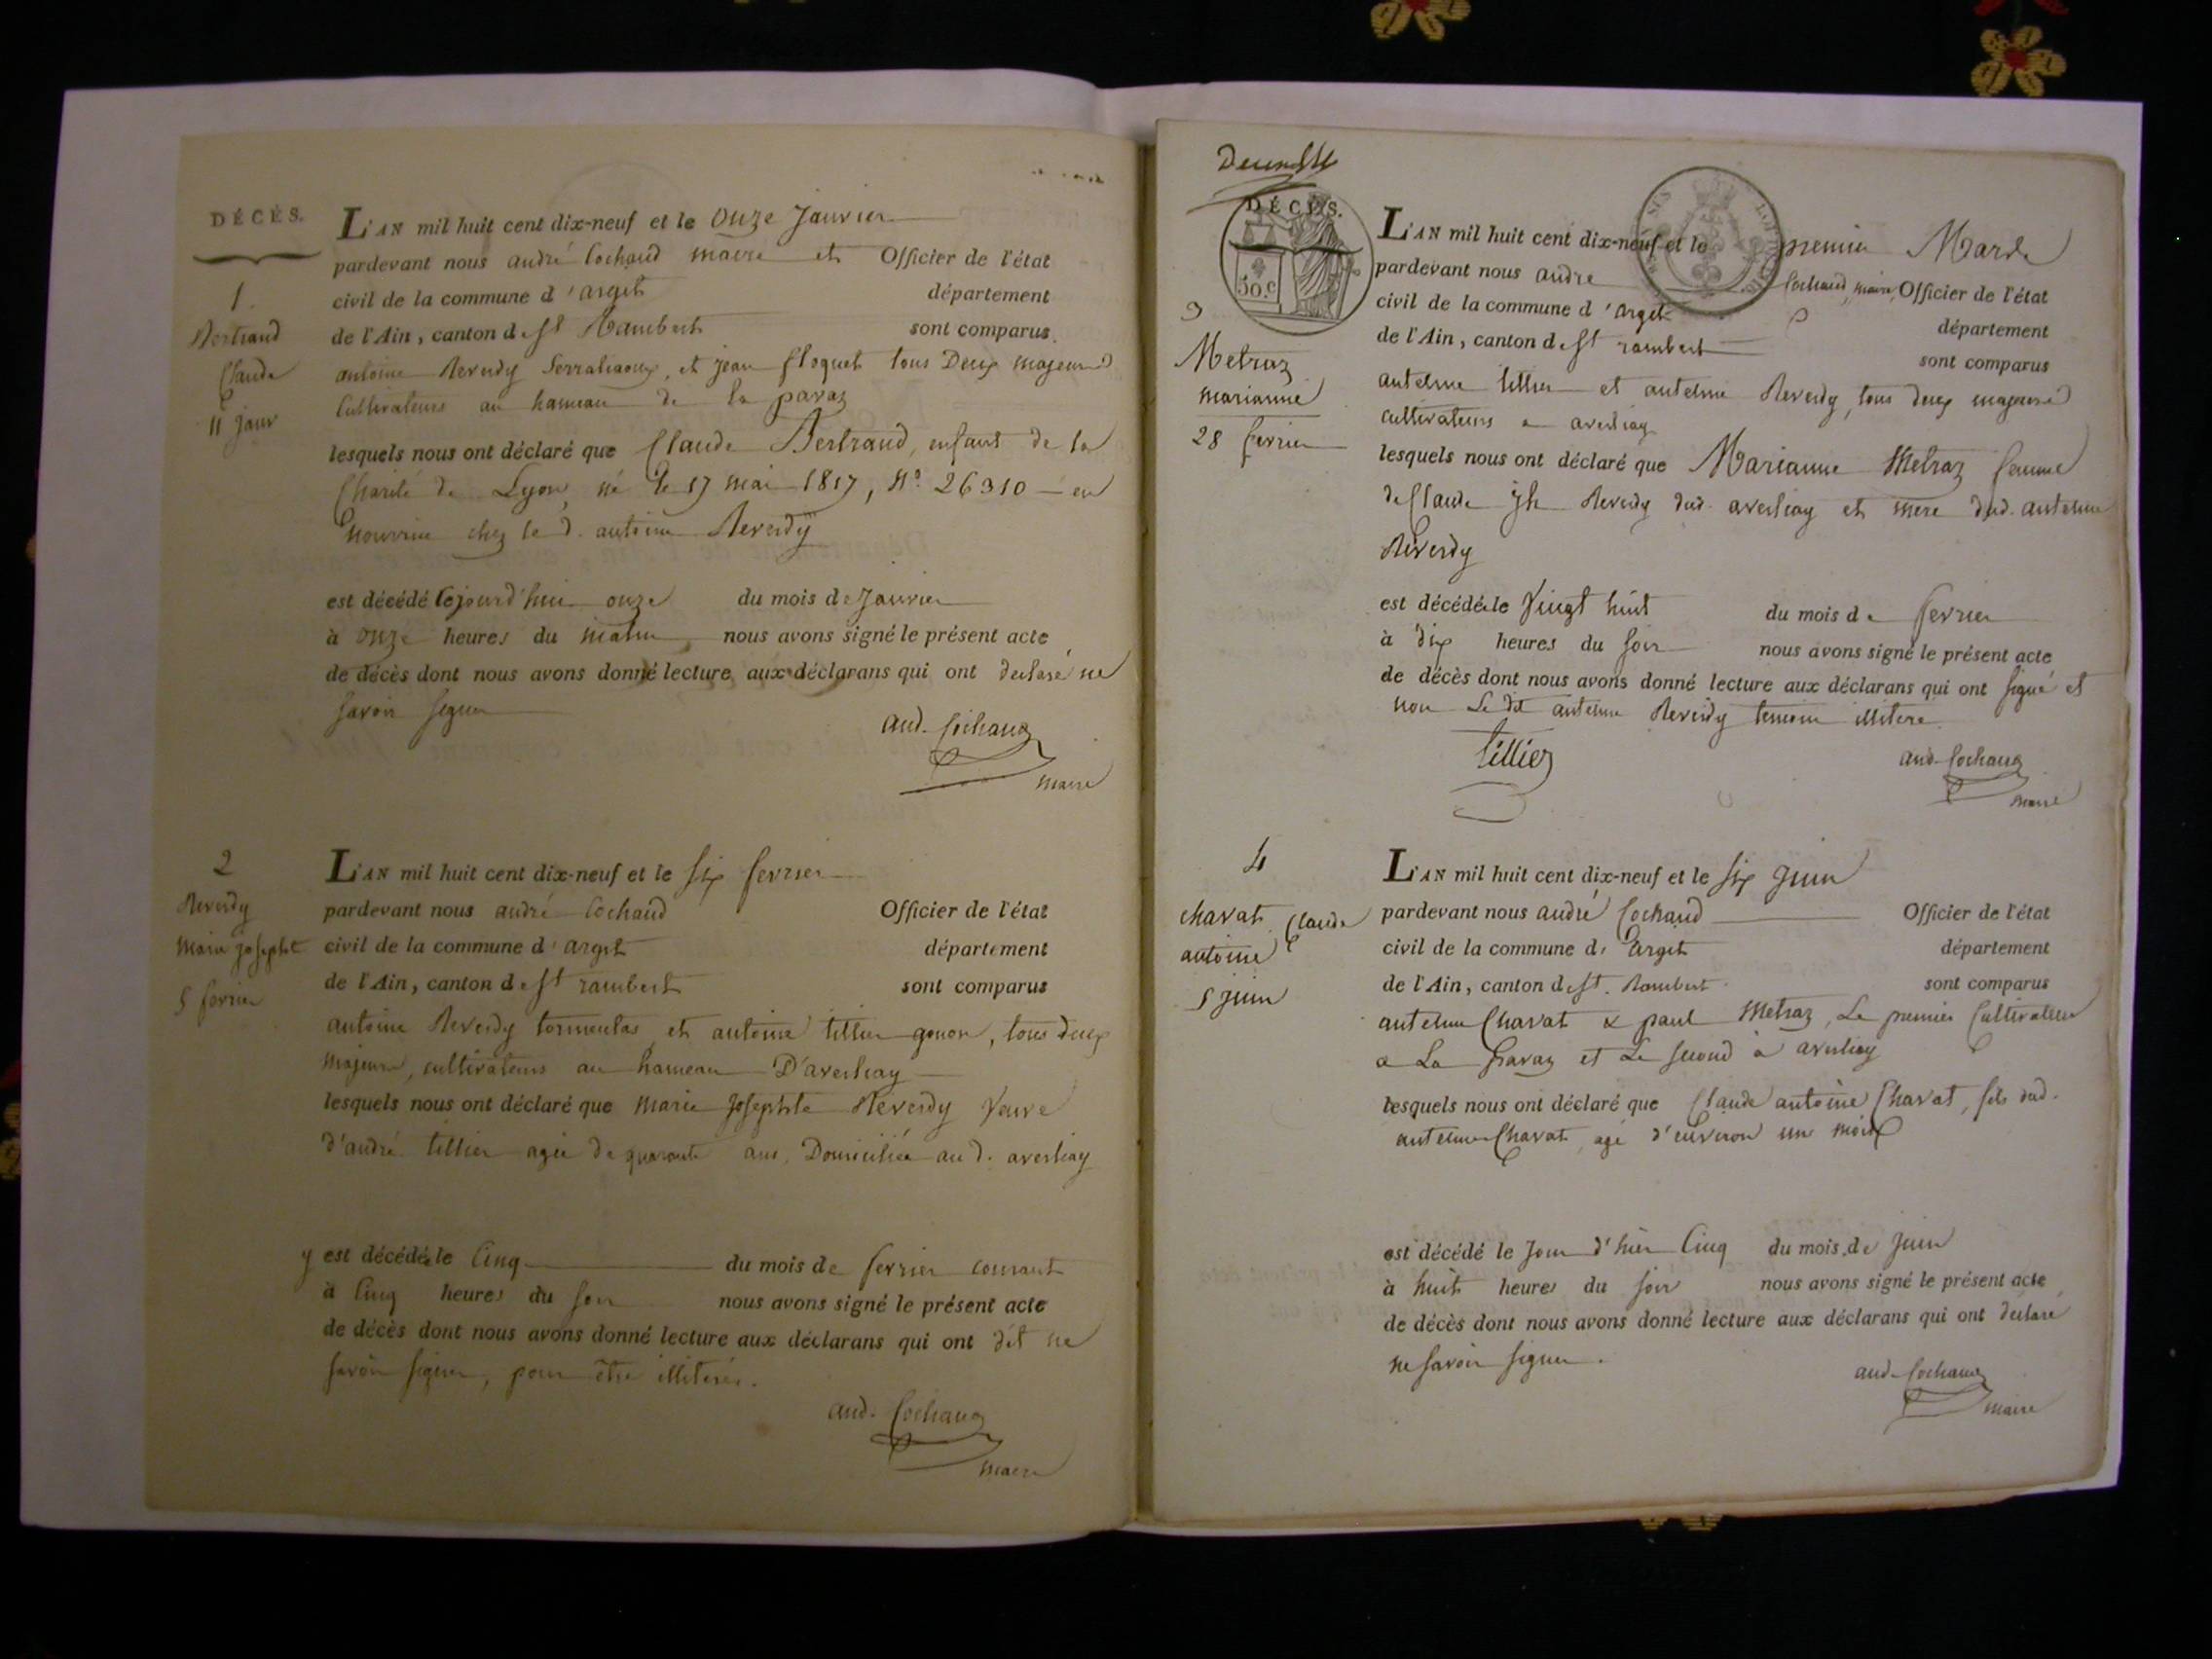 DÉCÈS.
1.
Bertrand
Claude
11 janv
L'AN mil huit cent dix-neuf et le onze janvier
pardevant nous andré Cochaud maire et Officier de l'état
civil de la commune d'arget département
de l'Ain, canton de St Rambert sont comparus.
antoine Reverdy et jean floquet tous Deux majeurs
Cultivateurs au hameau de la paraz
lesquels nous ont déclaré que Claude Bertrand, enfant de la
Charité de Lyon, né le 17 mai 1817, N.º 26310 en
nourrice chez le d. antoine Reverdy
est décédé cejourd'hui onze du mois de janvier
à onze heures du matin, nous avons signé le présent acte
de décès dont nous avons donné lecture aux déclarans qui ont declaré ne
savoir signer
and. Cochaud
maire
2
Reverdy
Marie josephte
5 fevrier
L'AN mil huit cent dix-neuf et le six fevrier
pardevant nous andré Cochaud Officier de l'état
civil de la commune d'arget département
de l'Ain, canton de St rambert sont comparus
antoine Reverdy tormentas et antoine tillier gonon, tous deux
majeurs, cultivateurs au hameau D'averliay
lesquels nous ont déclaré que marie Josephte Reverdy veuve
d'andré tillier agée de quarante ans, Domiciliée au d. averliay
y est décédée le Cinq du mois de fevrier courant
à Cinq heures du soir nous avons signé le présent acte
de décès dont nous avons donné lecture aux déclarans qui ont dit ne
savoir signer, pour être illiterés.
and. Cochaud
maire
DÉCÈS.
50.c
3
Metraz
marianne
28 fevrier
L'AN mil huit cent dix-neuf et le premier Mars
pardevant nous andré Cochaud, maire, Officier de l'état
civil de la commune d'arget département
de l'Ain, canton de St rambert sont comparus
antelme tillier et antelme Reverdy, tous deux majeurs
cultivateurs a averliay
lesquels nous ont déclaré que Marianne Metraz femme
de Claude jh Reverdy dud. averliay et mere dud. antelme
Reverdy
est décédée le vingt huit du mois de fevrier
à dix heures du soir nous avons signé le présent acte
de décès dont nous avons donné lecture aux déclarans qui ont signé et
non Le dit antelme Reverdy temoin illitere.
tillier
and. Cochaud
maire
4
chavat Claude
antoine
5 juin
L'AN mil huit cent dix-neuf et le six juin
pardevant nous andré Cochaud Officier de l'état
civil de la commune d'arget département
de l'Ain, canton de St. Rambert sont comparus
antelme Chavat & paul Metraz, Le premier Cultivateur
a La paraz et Le second à averliay
lesquels nous ont déclaré que Claude antoine Chavat, fils dud.
antelme Chavat, agé d'environ un mois
est décédé le jour d'hier Cinq du mois de juin
à huit heures du soir nous avons signé le présent acte
de décès dont nous avons donné lecture aux déclarans qui ont déclaré
ne savoir signer.
and. Cochaud
maire